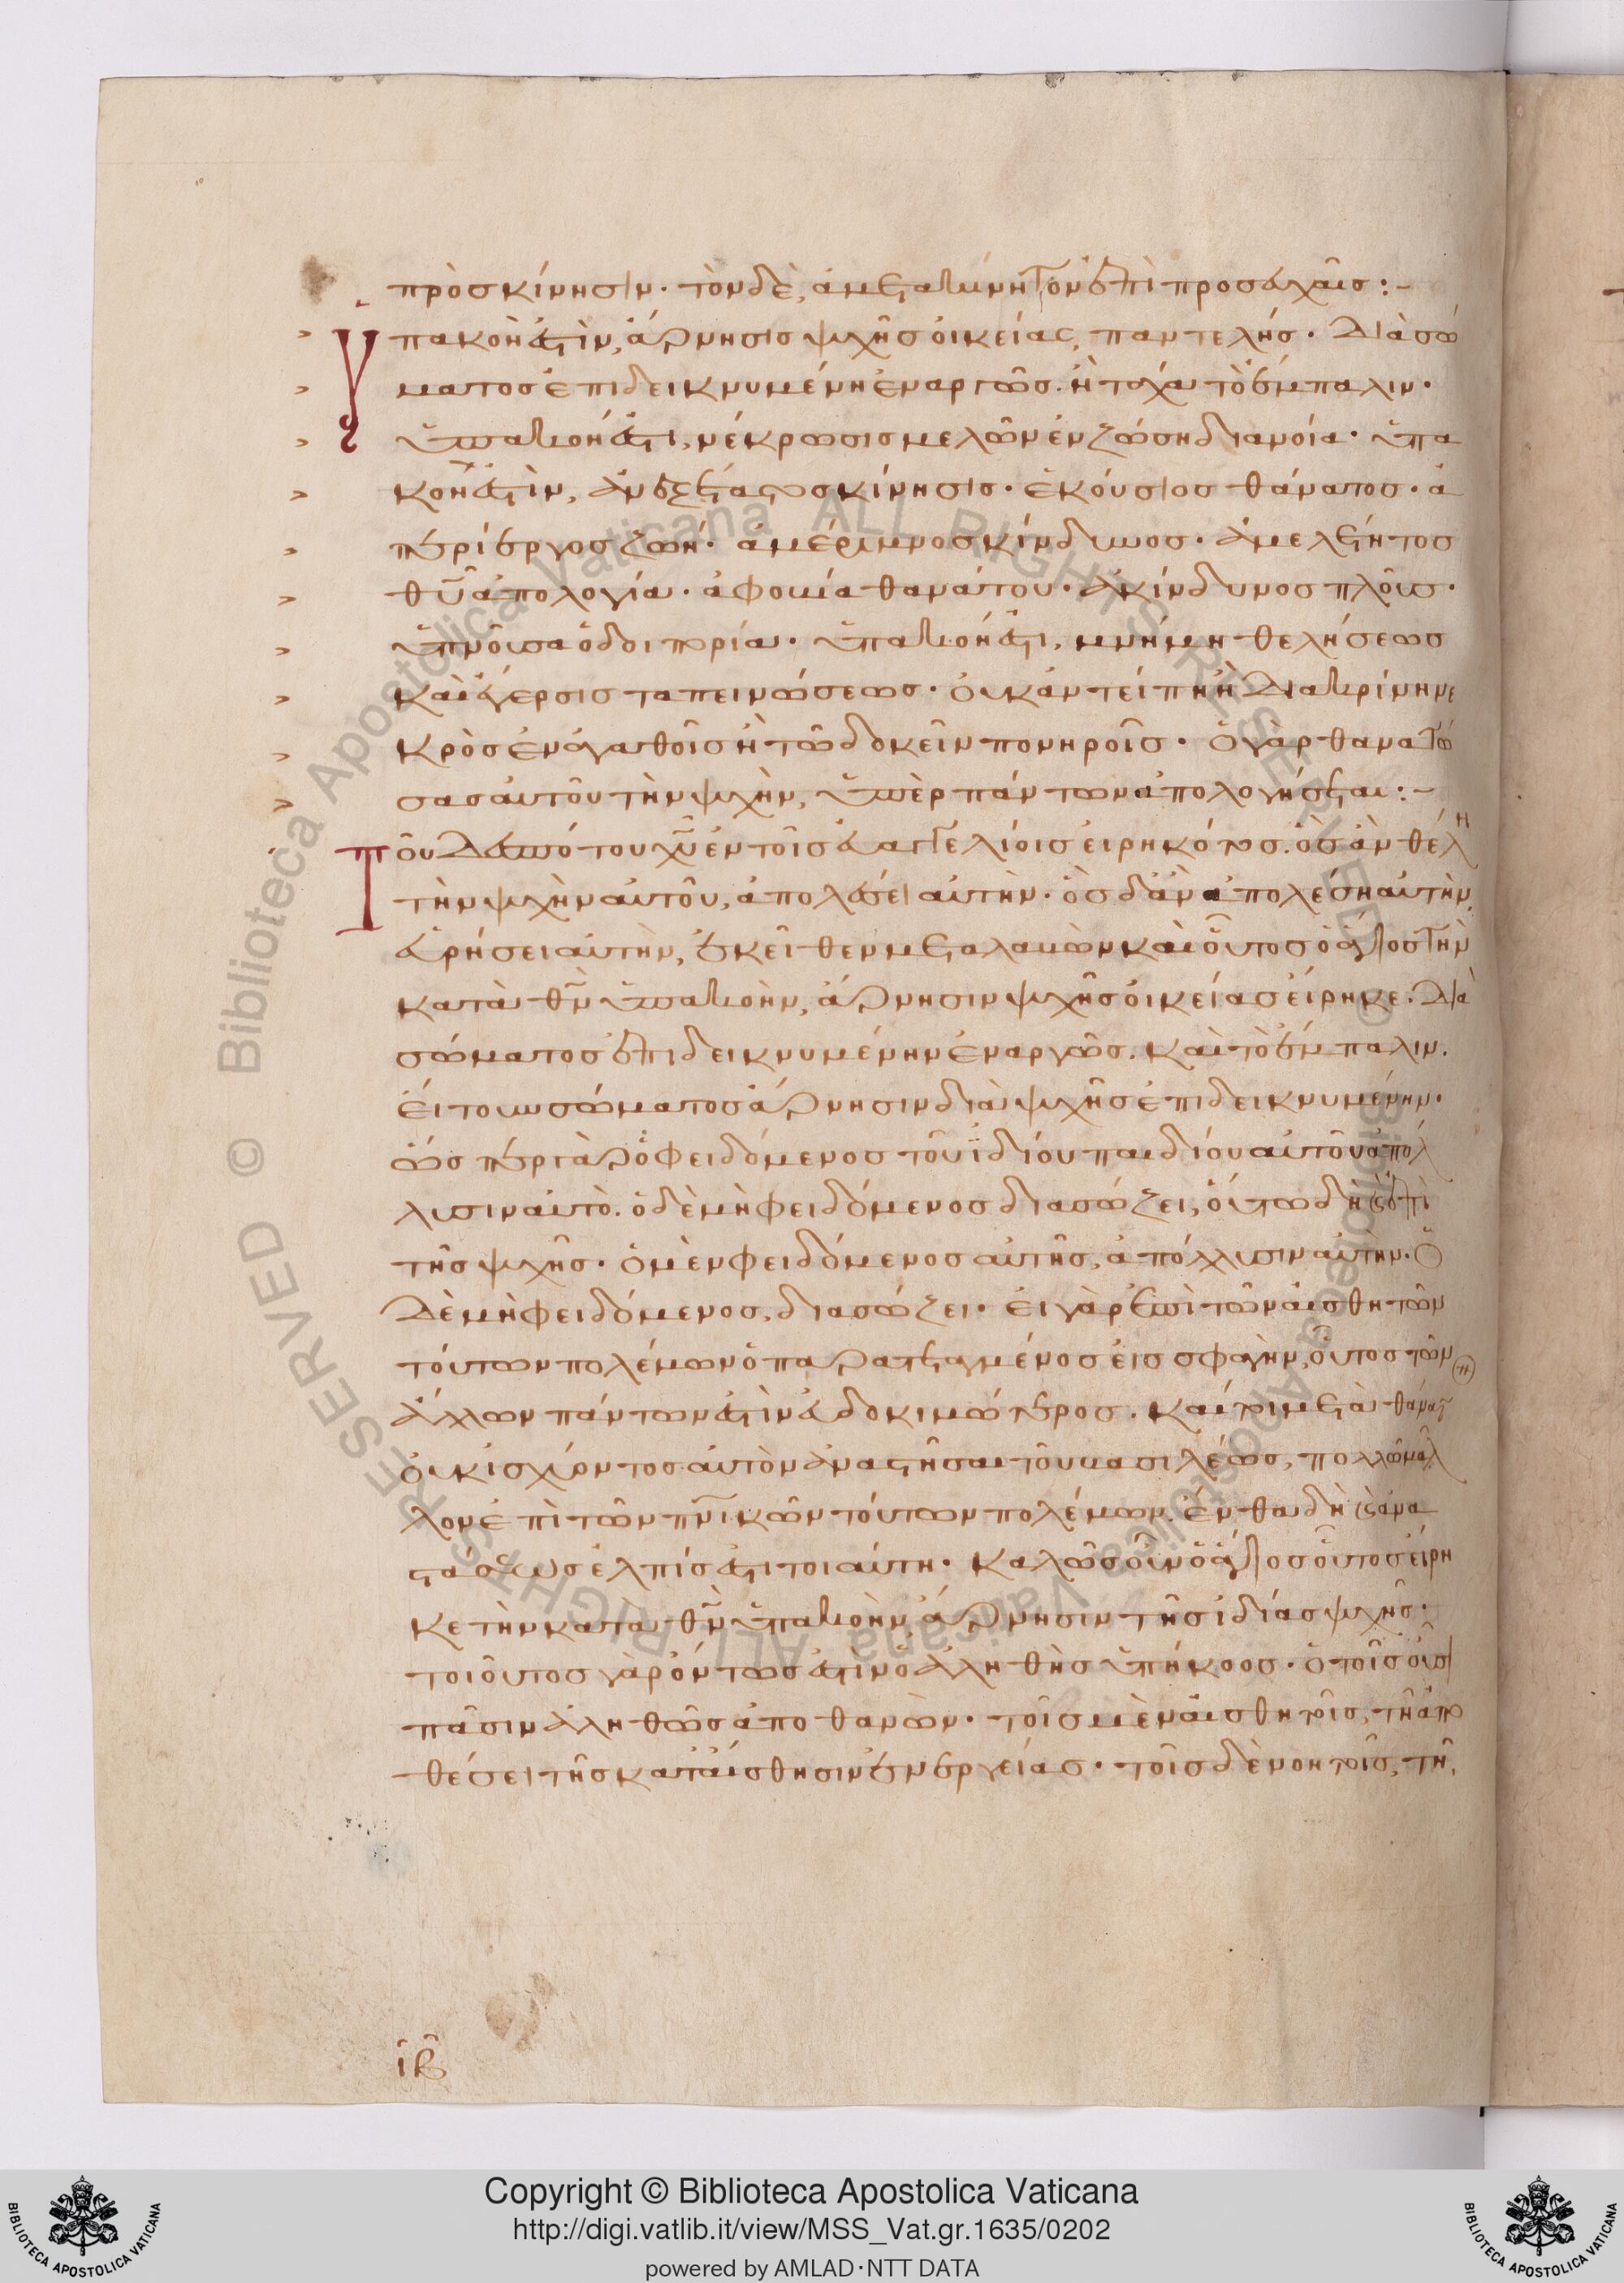 πρὸς κίνησιν· τὸν δὲ, ἀμετακίνητον ἐπὶ προσευχαῖς:–
Ὑπακοὴ ἐστὶν, ἄρνησις ψυχῆς οἰκείας, παντελής· διὰ σώ
ματος ἐπιδεικνυμένη ἐναργῶς. ἢ τάχα τὸ ἔμπαλιν·
ὑπακοή ἐστι, νέκρωσις μελῶν ἐν ζώσῃ διανοία· ὑπα
κοή ἐστὶν, ἀνεξέταστος κίνησις· ἑκούσιος θάνατος· ἀ
περίεργος ζωή· ἀμέριμνος κίνδυνος· ἀμελέτητος
θῦ ἀπολογία· ἀφοβία θανάτου· ἀκίνδυνος πλοῦς·
ὑπνοῦσα ὁδοιπορία· ὑπακοή ἐστι, μνῆμη θελήσεως
καὶ ἔγερσις ταπεινώσεως· οὐκ ἀντείπῃ ἢ διακρίνη νε
κρὸς ἐν ἀγαθοῖς ἢ τῶ δοκεῖν πονηροῖς· ὁ γὰρ θανατώ
σας αὐτοῦ τὴν ψυχὴν, ὑπὲρ πάντων ἀπολογήσεται:–
Τοῦ δεσπότου χῦ ἐν τοῖς εὐαγγελίοις εἰρηκότος. ὃς ἂν θέλη
τὴν ψυχὴν αὐτοῦ, ἀπολέσει αὐτὴν· ὃς δ' ἂν ἀπολέση αὐτὴν,
εὑρήσει αὐτὴν, ἐκεῖθεν μεταλαβὼν καὶ οὗτος ὁ ἅγιος τὴν
κατὰ θν ὑπακοὴν, ἄρνησιν ψυχῆς οἰκείας εἴρηκε. διὰ
σώματος ἐπιδεικνυμένην ἐναργῶς. καὶ τὸ ἔμπαλιν.
εἴτουν σώματος ἄρνησιν διὰ ψυχῆς ἐπιδεικνυμένην·
ὥσπερ γὰρ ὁ φειδόμενος τοῦ ἰδίου παιδίου αὐτοῦ ἀπόλ
λυσιν αὐτὸ. ὁ δὲ μὴ φειδόμενος διασώζει, οὕτω δὴ καὶ ἐπὶ
τῆς ψυχῆς· ὁ μὲν φειδόμενος αὐτῆς, ἀπόλλυσιν αὐτὴν· ὁ
δὲ μὴ φειδόμενος, διασώζει· εἰ γὰρ ἐπὶ τῶν αἰσθητῶν
τούτων πολέμων ὁ παρατεταγμένος εἰς σφαγὴν, οὗτος τῶν
ἄλλων πάντων ἐστὶν εὐδοκιμώτερος. καίτοι μετὰ θάνατ
οὐκ ἰσχύοντος αὐτὸν ἀναστῆσαι τοῦ βασιλέως, πολλῶ μᾶλ
λον ἐπὶ τῶν πνικῶν τούτων πολέμων. ἔνθα δὴ καὶ ἀνα
στάσεως ἐλπίς ἐστι τοιαύτη· καλῶς οὖν ὁ ἅγιος οὗτος εἴρη
κε τὴν κατὰ θν ὑπακοὴν, ἄρνησιν τῆς ἰδίας ψυχῆς·
τοιοῦτος γὰρ ὄντως ἐστὶν ὁ ἀληθὴς ὑπήκοος· ὁ τοῖς οὖσι
πᾶσιν ἀληθῶς ἀποθανὼν· τοῖς μὲν αἰσθητοῖς, τῆ ἀπο
θέσει τῆς κατ' αἴσθησιν ἐνεργείας· τοῖς δὲ νοητοῖς, τῆ,
ιβ
Copyright © Biblioteca Apostolica Vaticana
http://digi.vatlib.it/view/MSS_Vat.gr.1635/0202
powered by AMLAD·NTT DATA
BIBLIOTECA APOSTOLICA VATICANA
BIBLIOTECA APOSTOLICA VATICANA